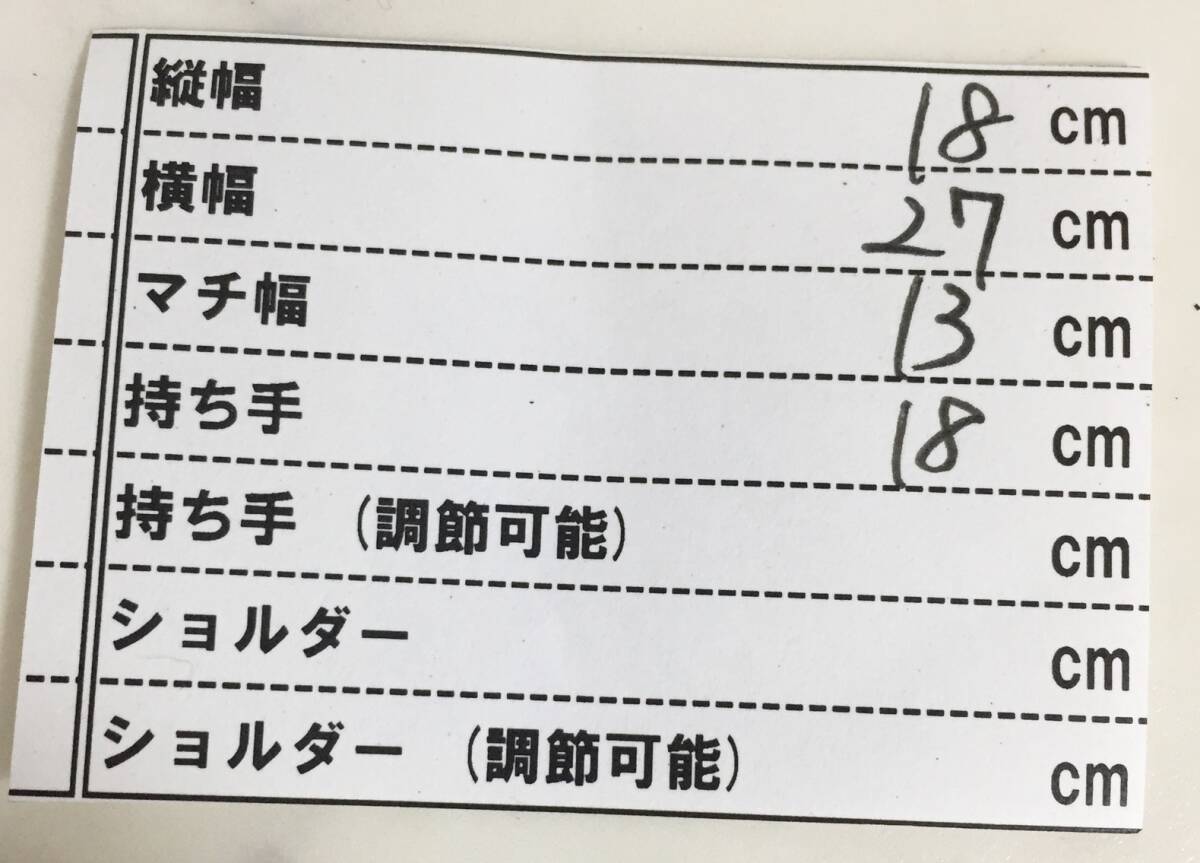 縦幅 18 cm
横幅 27 cm
マチ幅 13 cm
持ち手 18 cm
持ち手 (調節可能) cm
ショルダー cm
ショルダー (調節可能) cm